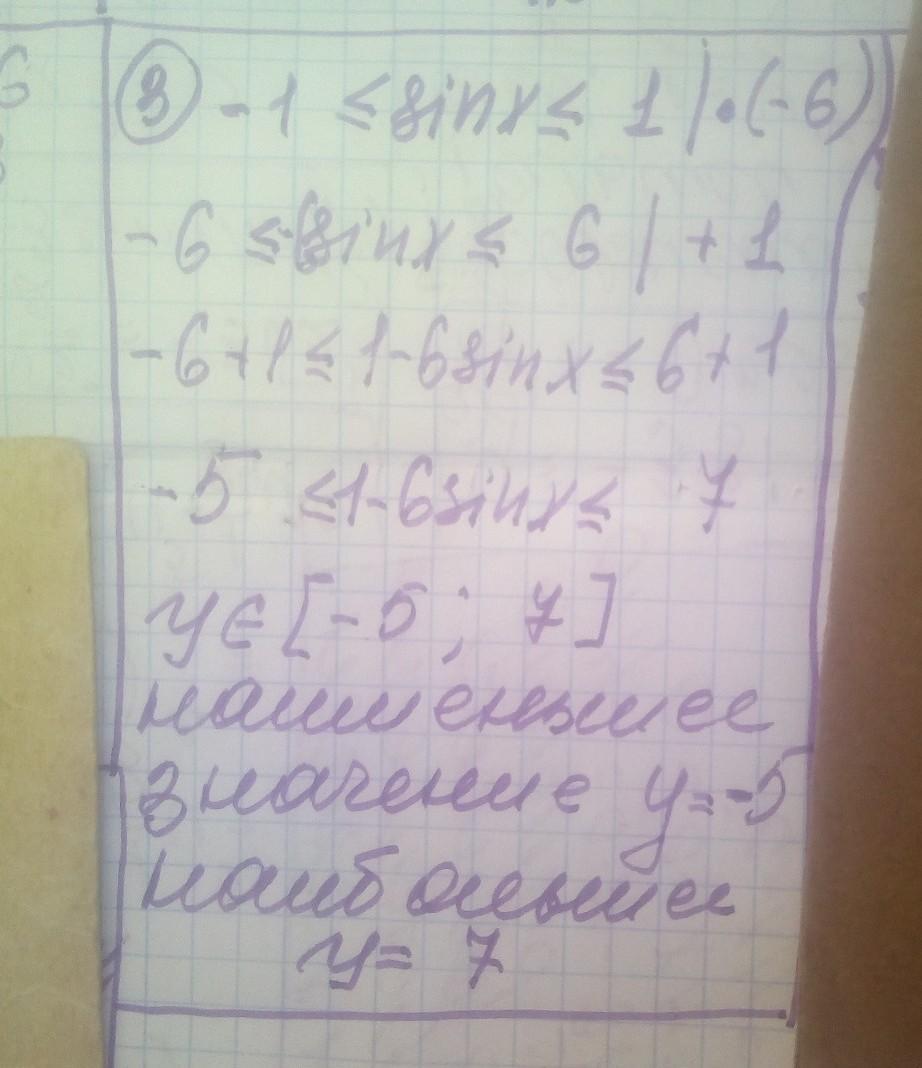 ③ -1 ≤ sinx ≤ 1 | · (-6)
-6 ≤ -6sinx ≤ 6 | + 1
-6+1 ≤ 1-6sinx ≤ 6+1
-5 ≤ 1-6sinx ≤ 7
y ∈ [-5; 7]
наименьшее
значение y=-5
наибольшее
y= 7